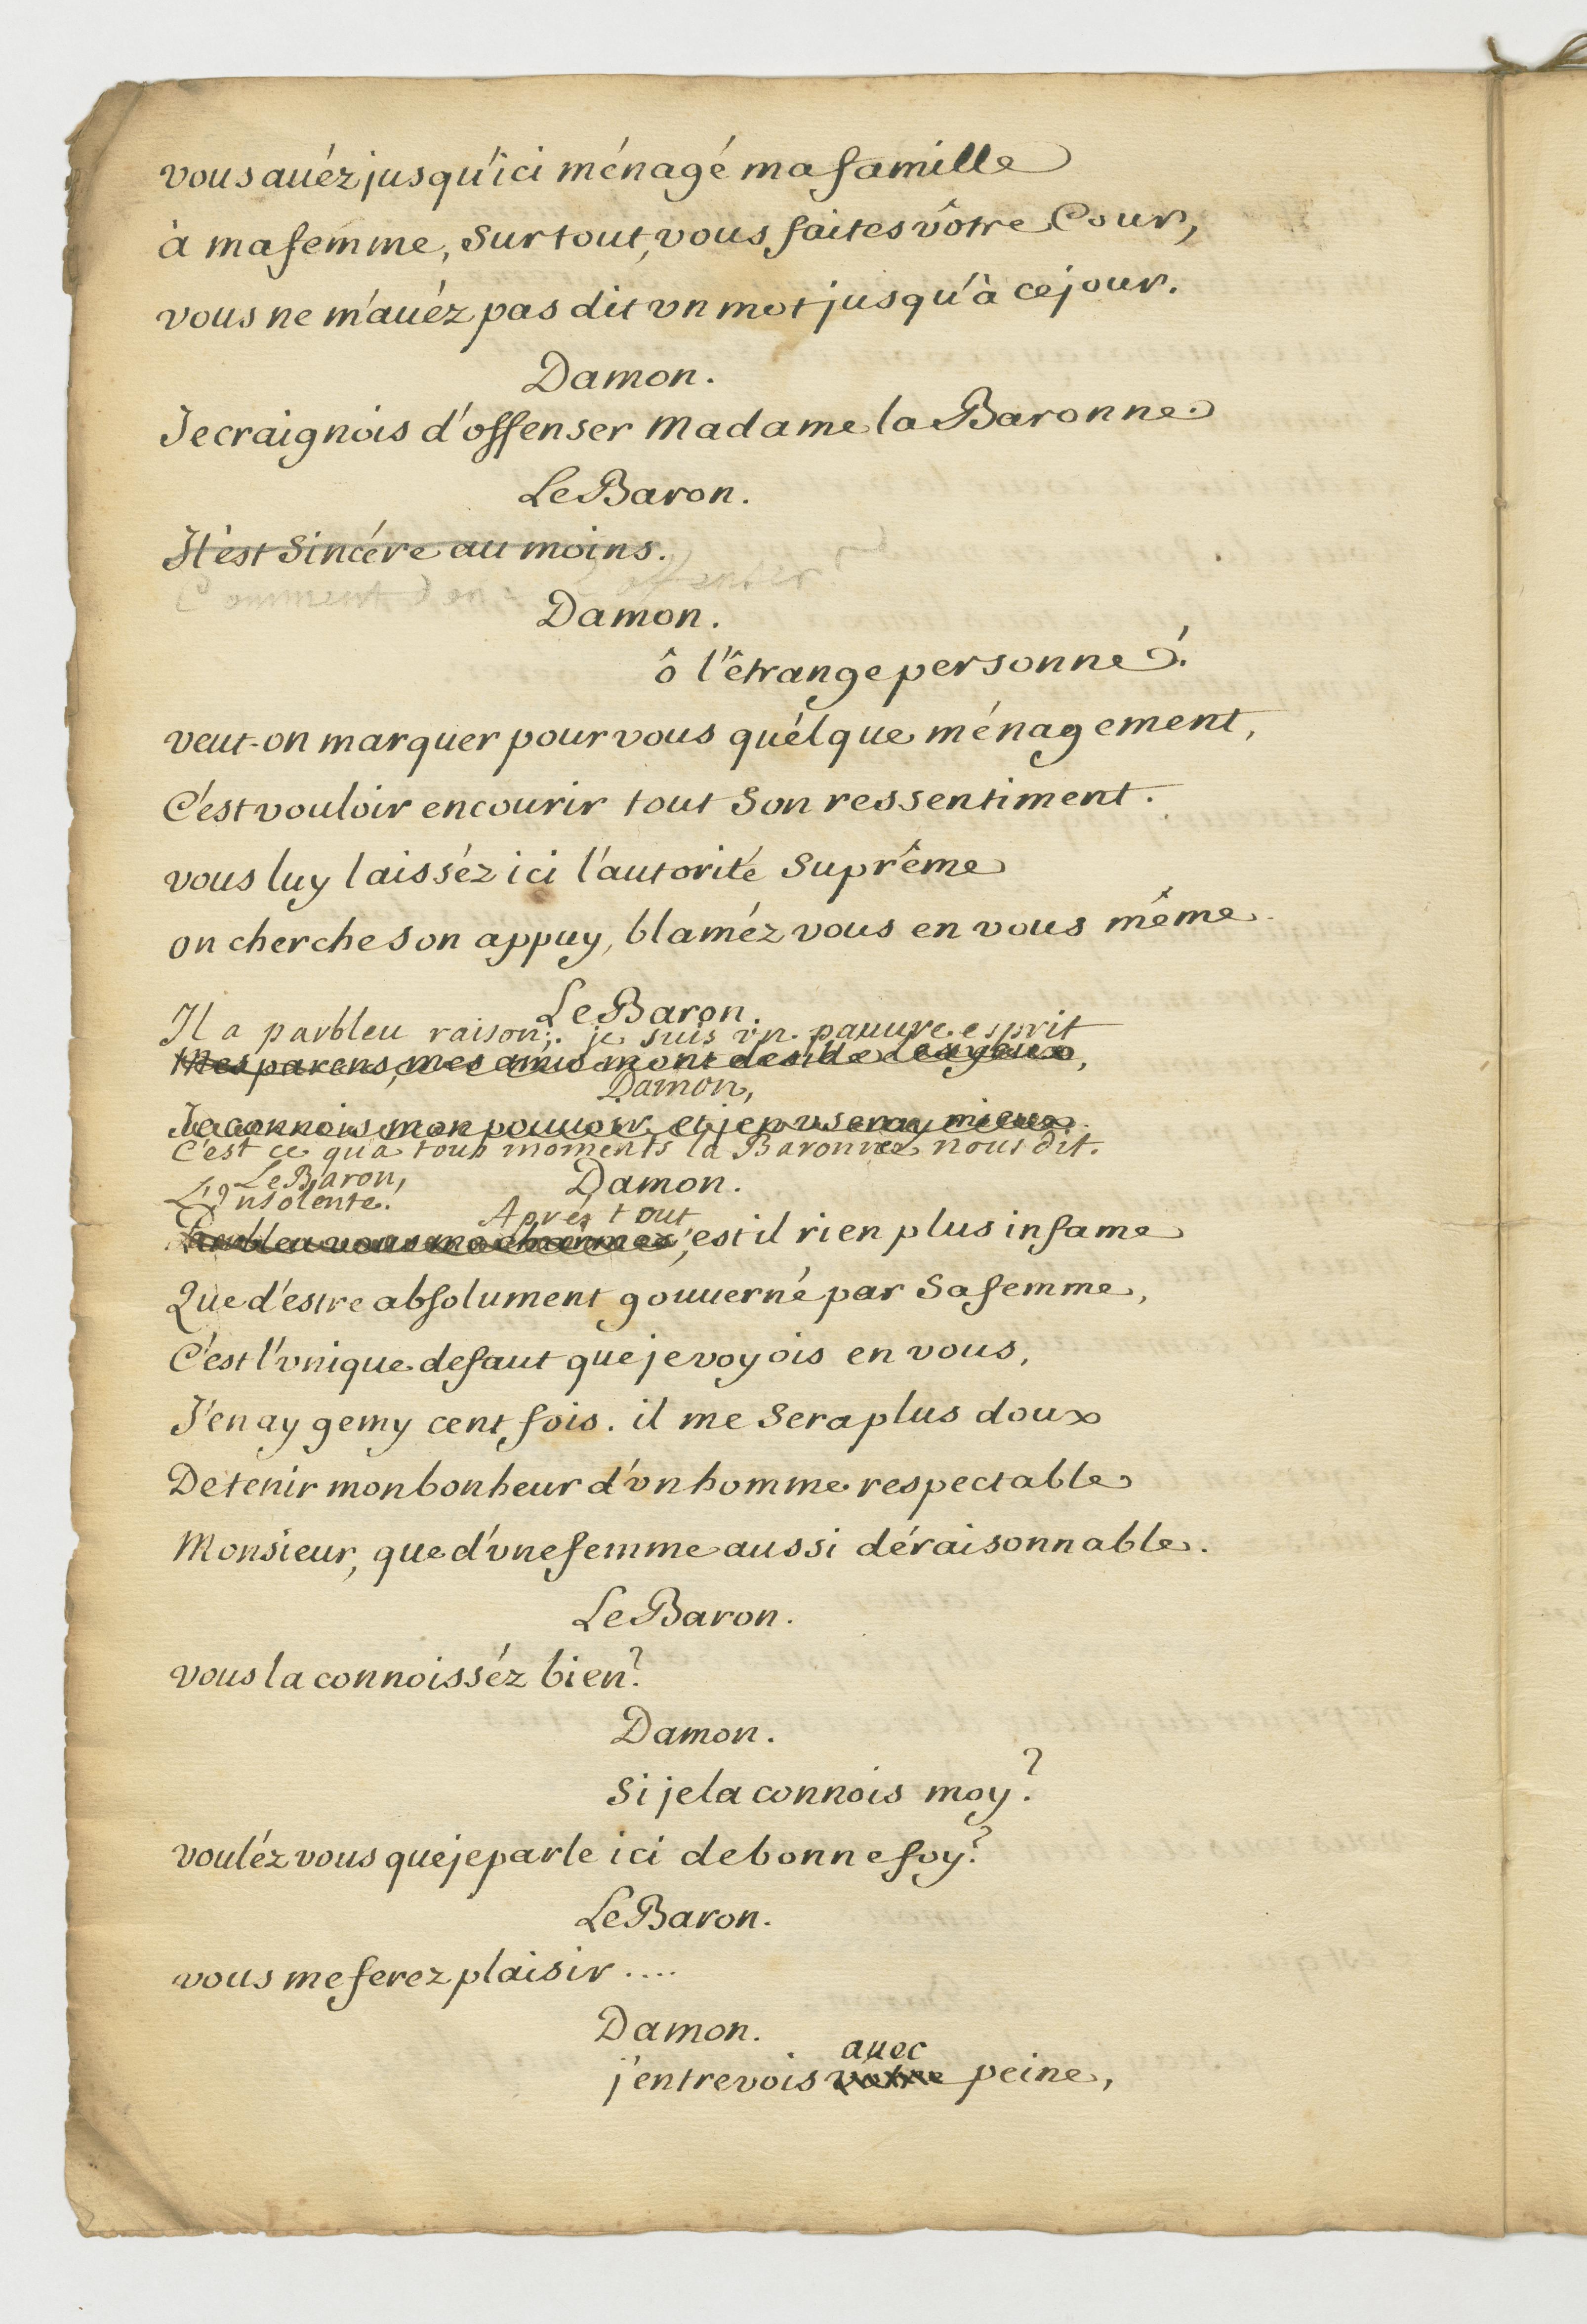 vous auéz jusqu'ici ménagé ma famille
à ma femme, surtout, vous faites vôtre Cour,
vous ne m'auéz pas dit vn mot jusqu'à ce jour.
Damon.
Je craignois d'offenser Madame la Baronne.
Le Baron.
Il est Sincére au moins.
Comment donc l'offenser?
Damon.
ô l'êtrange personne!
veut-on marquer pour vous quélque ménagement,
C'est vouloir encourir tout Son ressentiment.
vous luy laisséz ici l'autorité Suprême
on cherche son appuy, blaméz vous en vous même
Le Baron.
Il a parbleu raison; je suis vn pauure esprit
Mes parens, mes amis m'ont desillé les yeux,
Damon,
Je connois mon pouuoir, et j'en useray mieux.
C'est ce qu'a tous moments la Baronne nous dit.
Le Baron,
L'Insolente!
Damon.
Aprés tout
Parbleu vous me charmez, est il rien plus infame
Que d'estre absolument gouuerné par Sa femme,
C'est l'vnique defaut que je voyois en vous,
J'en ay gemy cent fois. il me Sera plus doux
De tenir mon bonheur d'vn homme respectable
Monsieur, que d'vne femme aussi déraisonnable.
Le Baron.
vous la connoisséz bien?
Damon.
Si je la connois moy?
vouléz vous que je parle ici de bonne foy?
Le Baron.
vous me ferez plaisir ....
Damon.
auec
j'entrevois votre peine,